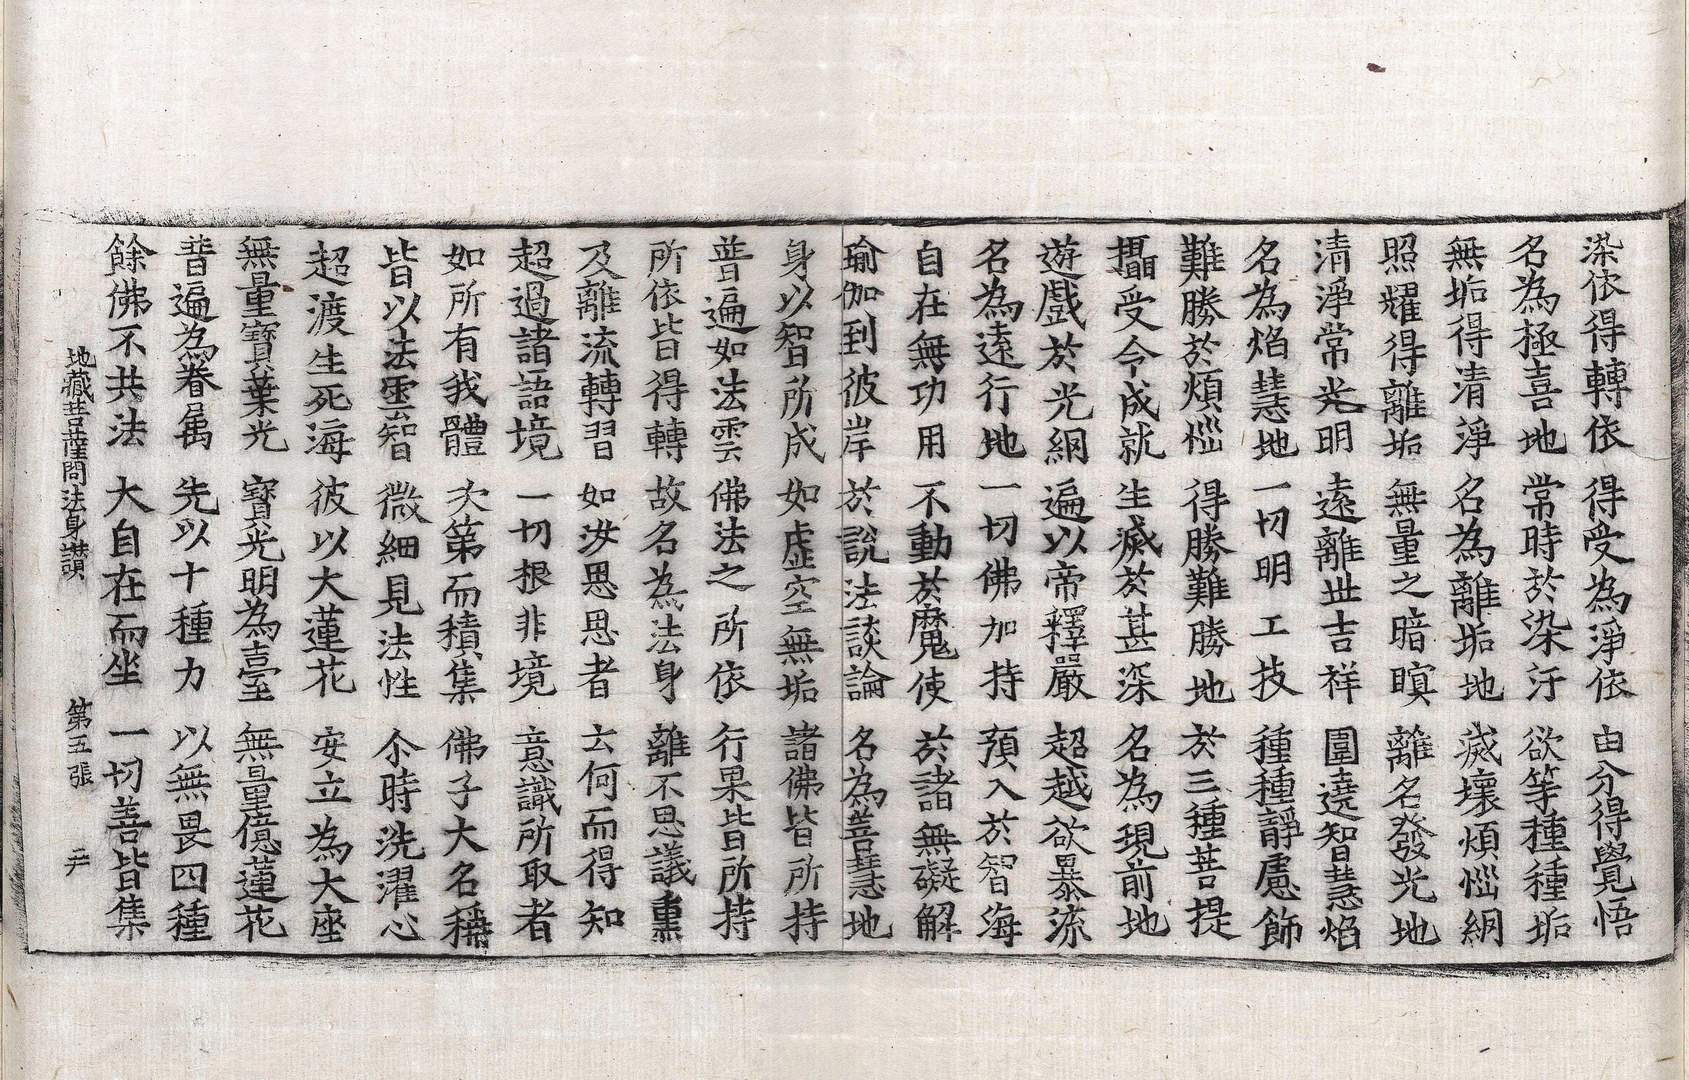 染依得轉依 得受為淨依 由分得覺悟
名為極喜地 常時於染汙 欲等種種垢
無垢得清淨 名為離垢地 滅壞煩惱網
照耀得離垢 無量之暗暝 離名發光地
清淨常光明 遠離世吉祥 圍遶智慧焰
名為焰慧地 一切明工技 種種靜慮飾
難勝於煩惱 得勝難勝地 於三種菩提
攝受令成就 生滅於甚深 名為現前地
遊戲於光網 遍以帝釋嚴 超越欲暴流
名為遠行地 一切佛加持 預入於智海
自在無功用 不動於魔使 於諸無礙解
瑜伽到彼岸 於說法談論 名為善慧地
身以智所成 如虛空無垢 諸佛皆所持
普遍如法雲 佛法之所依 行果皆所持
所依皆得轉 故名為法身 離不思議熏
及離流轉習 如汝思思者 云何而得知
超過諸語境 一切根非境 意識所取者
如所有我體 次第而積集 佛子大名稱
皆以法雲智 微細見法性 尒時洗濯心
超渡生死海 彼以大蓮花 安立為大座
無量寶葉光 寶光明為臺 無量億蓮花
普遍為眷属 先以十種力 以無畏四種
餘佛不共法 大自在而坐 一切善皆集
地藏菩薩問法身讃 第五張